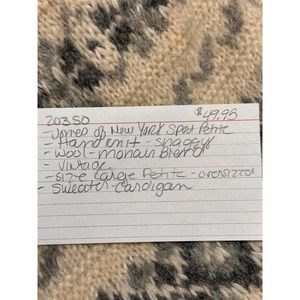 20350 $49.95
- Jones of New York Sport Petite
- Hand knit - shaggy
- Wool - mohair Blend
- Vintage
- size large Petite - oversized
- Sweater - cardigan